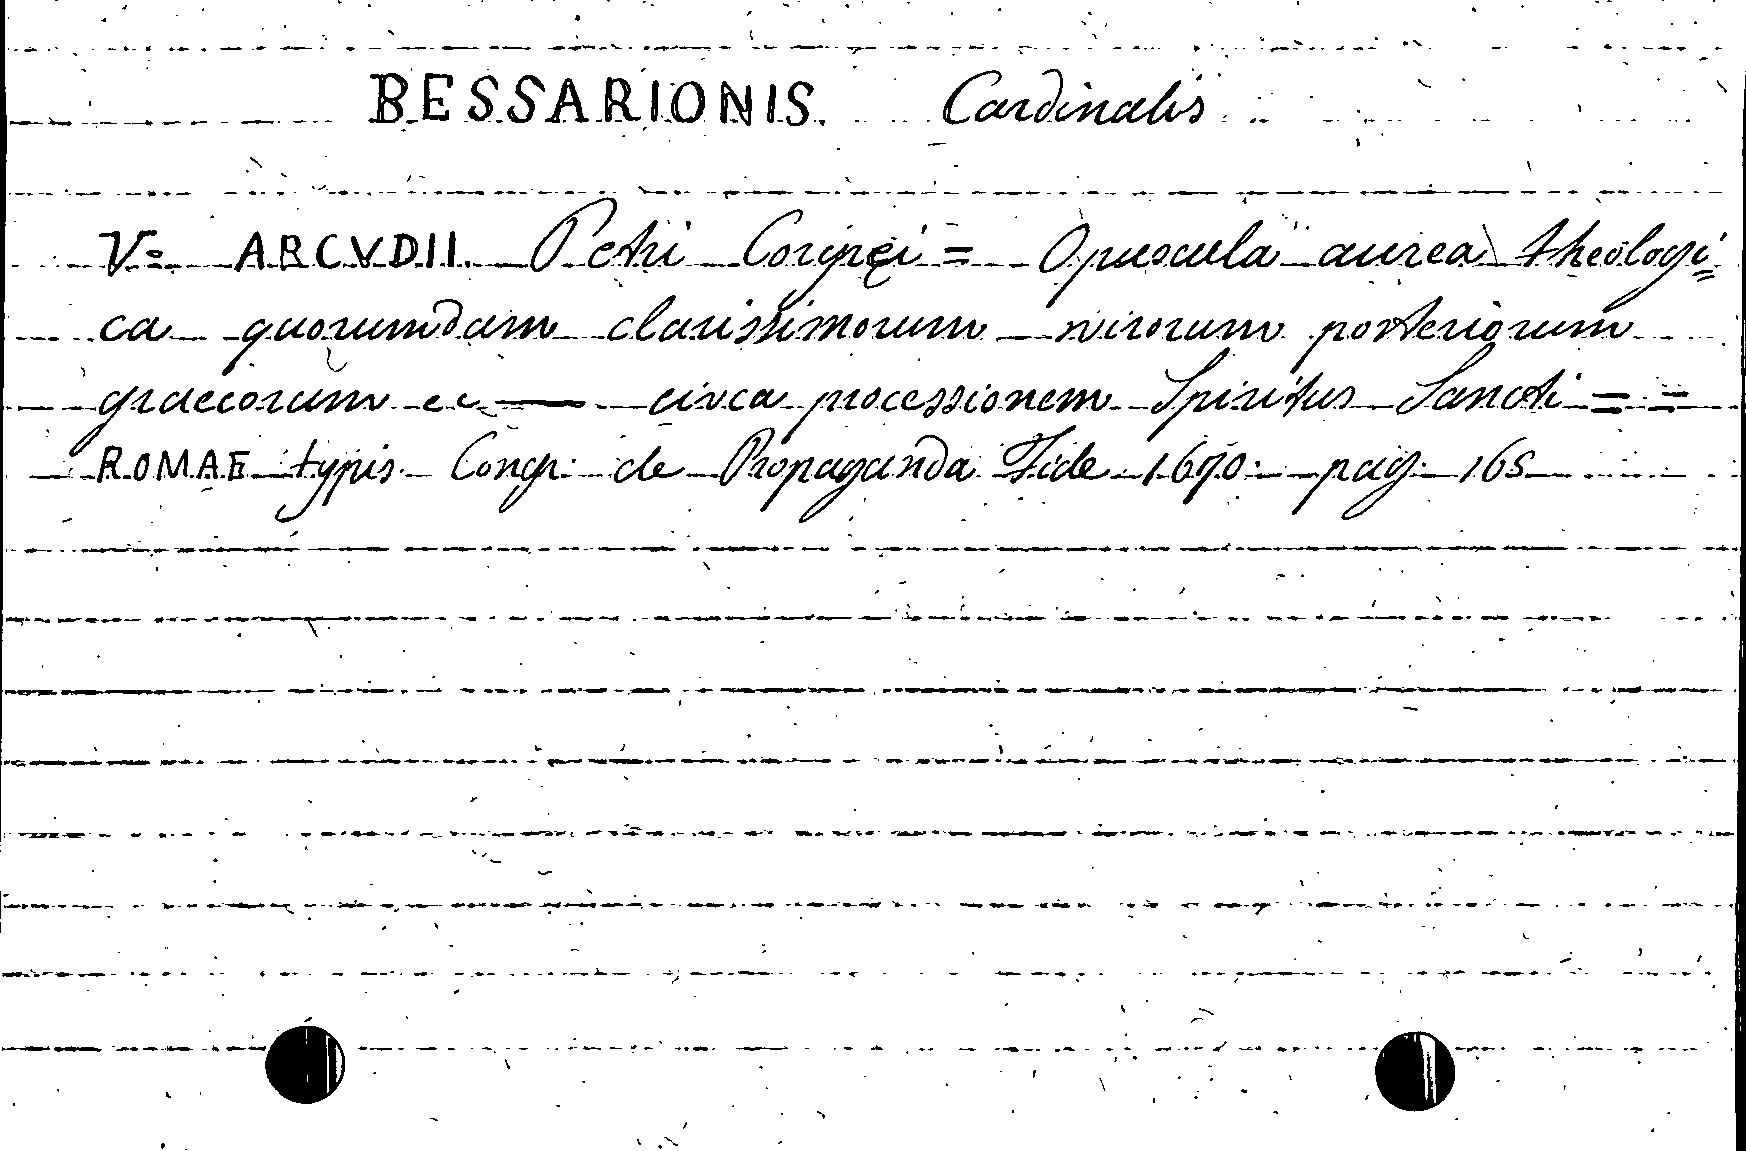 BESSARIONIS. Cardinalis
V= ARCVDII. Petri Corcyrei = Opuscula aurea theologi=
ca quorumdam clarissimorum virorum posteriorum
graecorum ec — circa processionem Spiritus Sancti = =
ROMAE typis Congr: de Propaganda Fide 1670: pag: 165